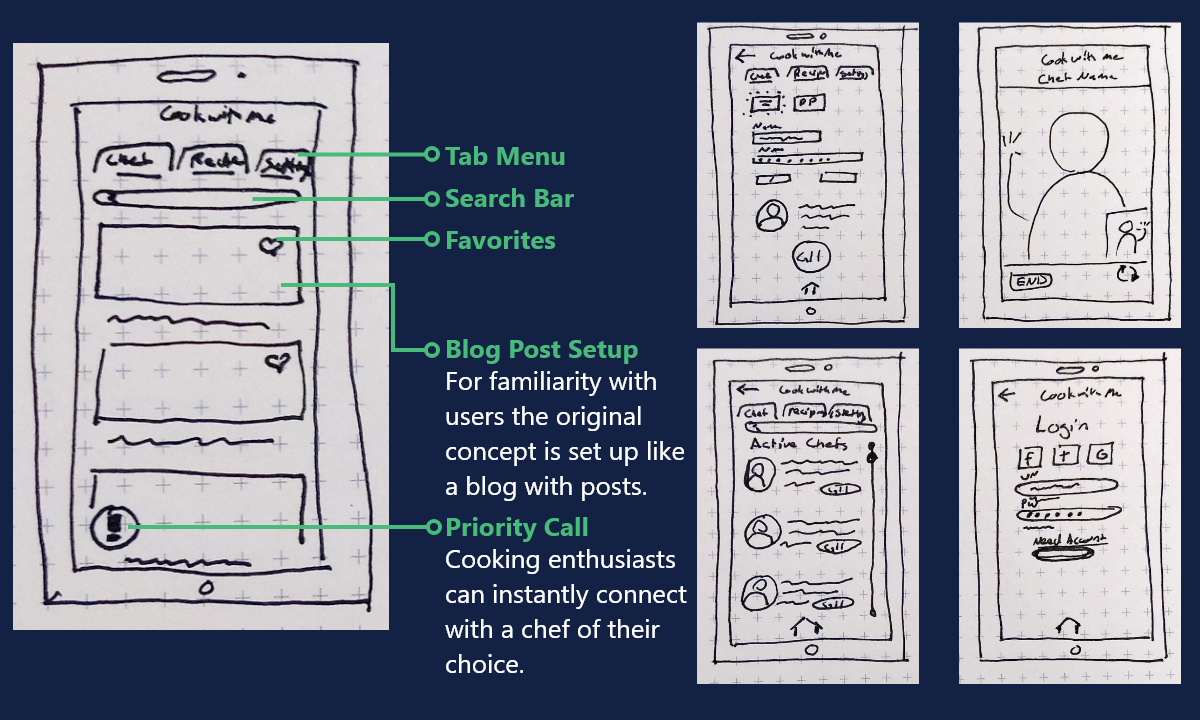 Cook with me
Chef Recipe Setting
Tab Menu
Search Bar
Favorites
Blog Post Setup
For familiarity with
users the original
concept is set up like
a blog with posts.
Priority Call
Cooking enthusiasts
can instantly connect
with a chef of their
choice.
Cook with me
Chef Recipe Setting
PP
Name
Call
Cook with me
Chef Name
END
Cook with me
Chef Recipe Setting
Active Chefs
Call
Call
Call
Cook with me
Login
f t G
UN
PW
Need Account